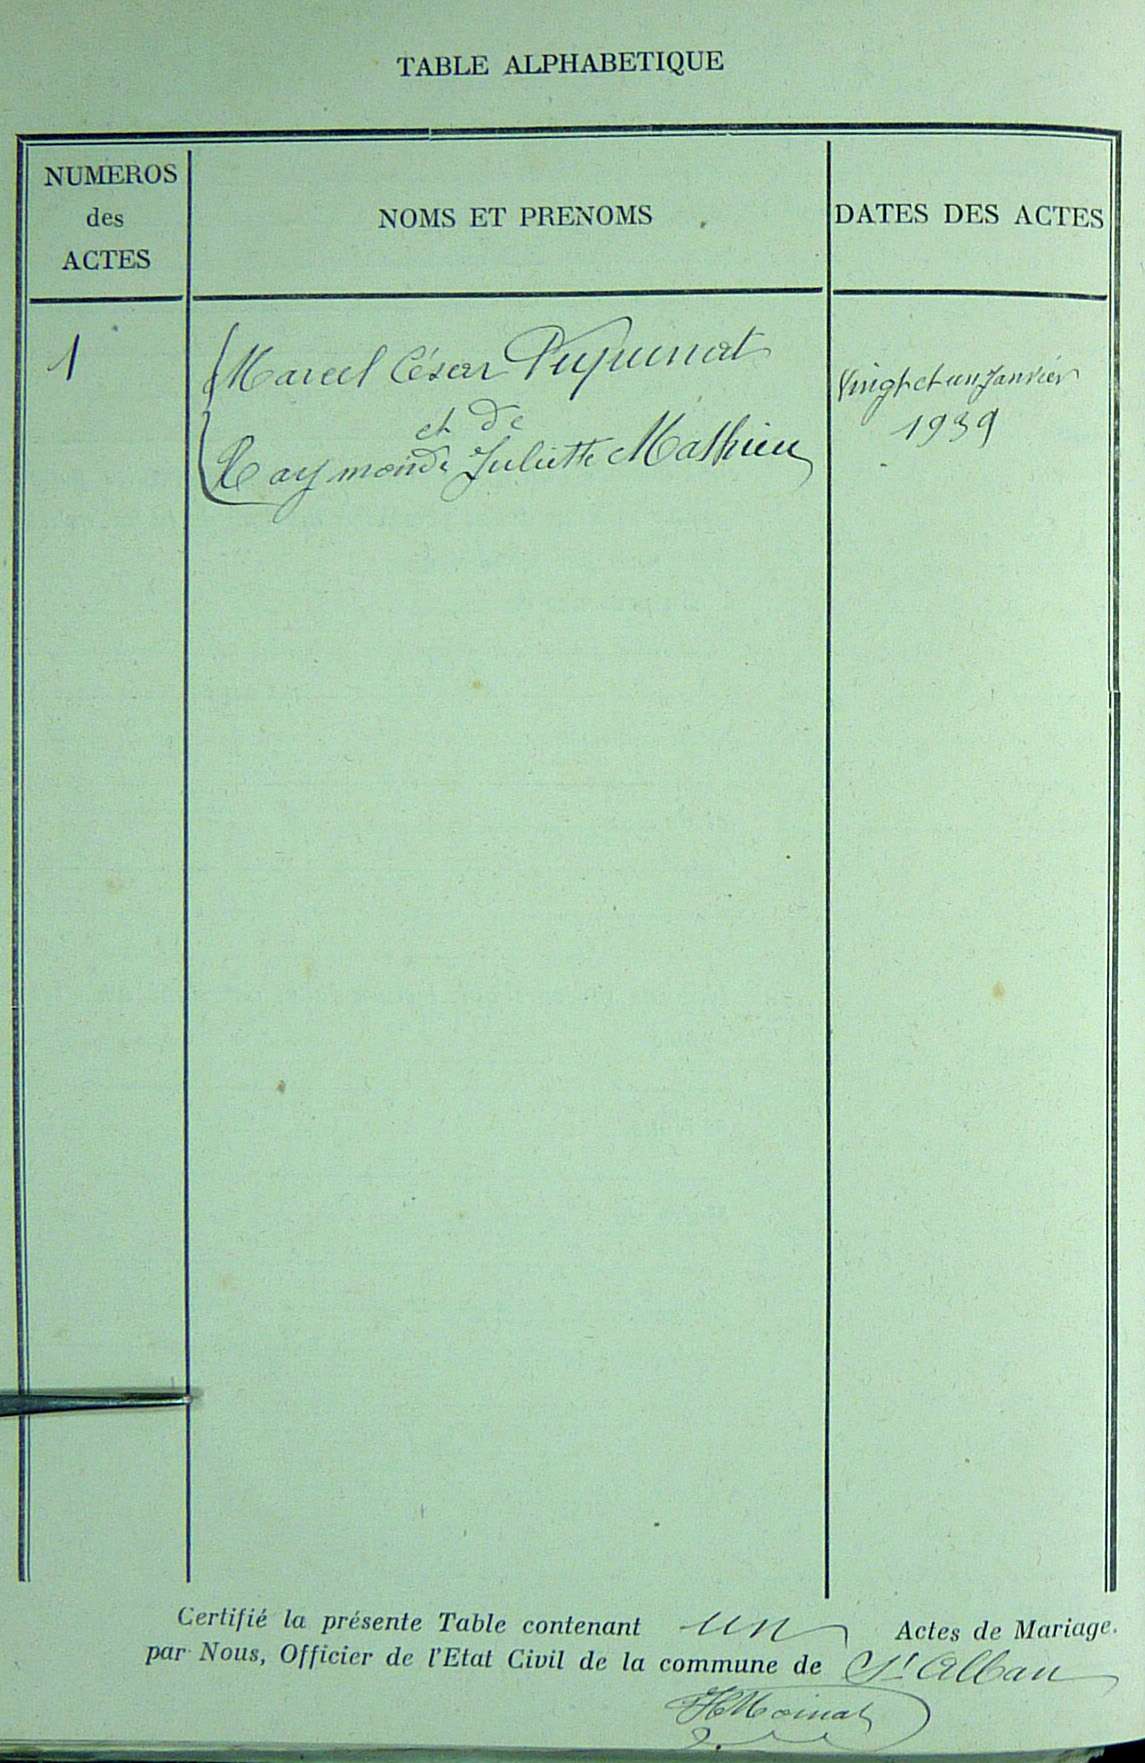 TABLE ALPHABETIQUE
NUMEROS
des
ACTES
NOMS ET PRENOMS
DATES DES ACTES
1
Marcel César
et de
Raymonde Juliette Mathieu
Vingt et un Janvier
1939
Certifié la présente Table contenant un Actes de Mariage.
par Nous, Officier de l'Etat Civil de la commune de St Alban